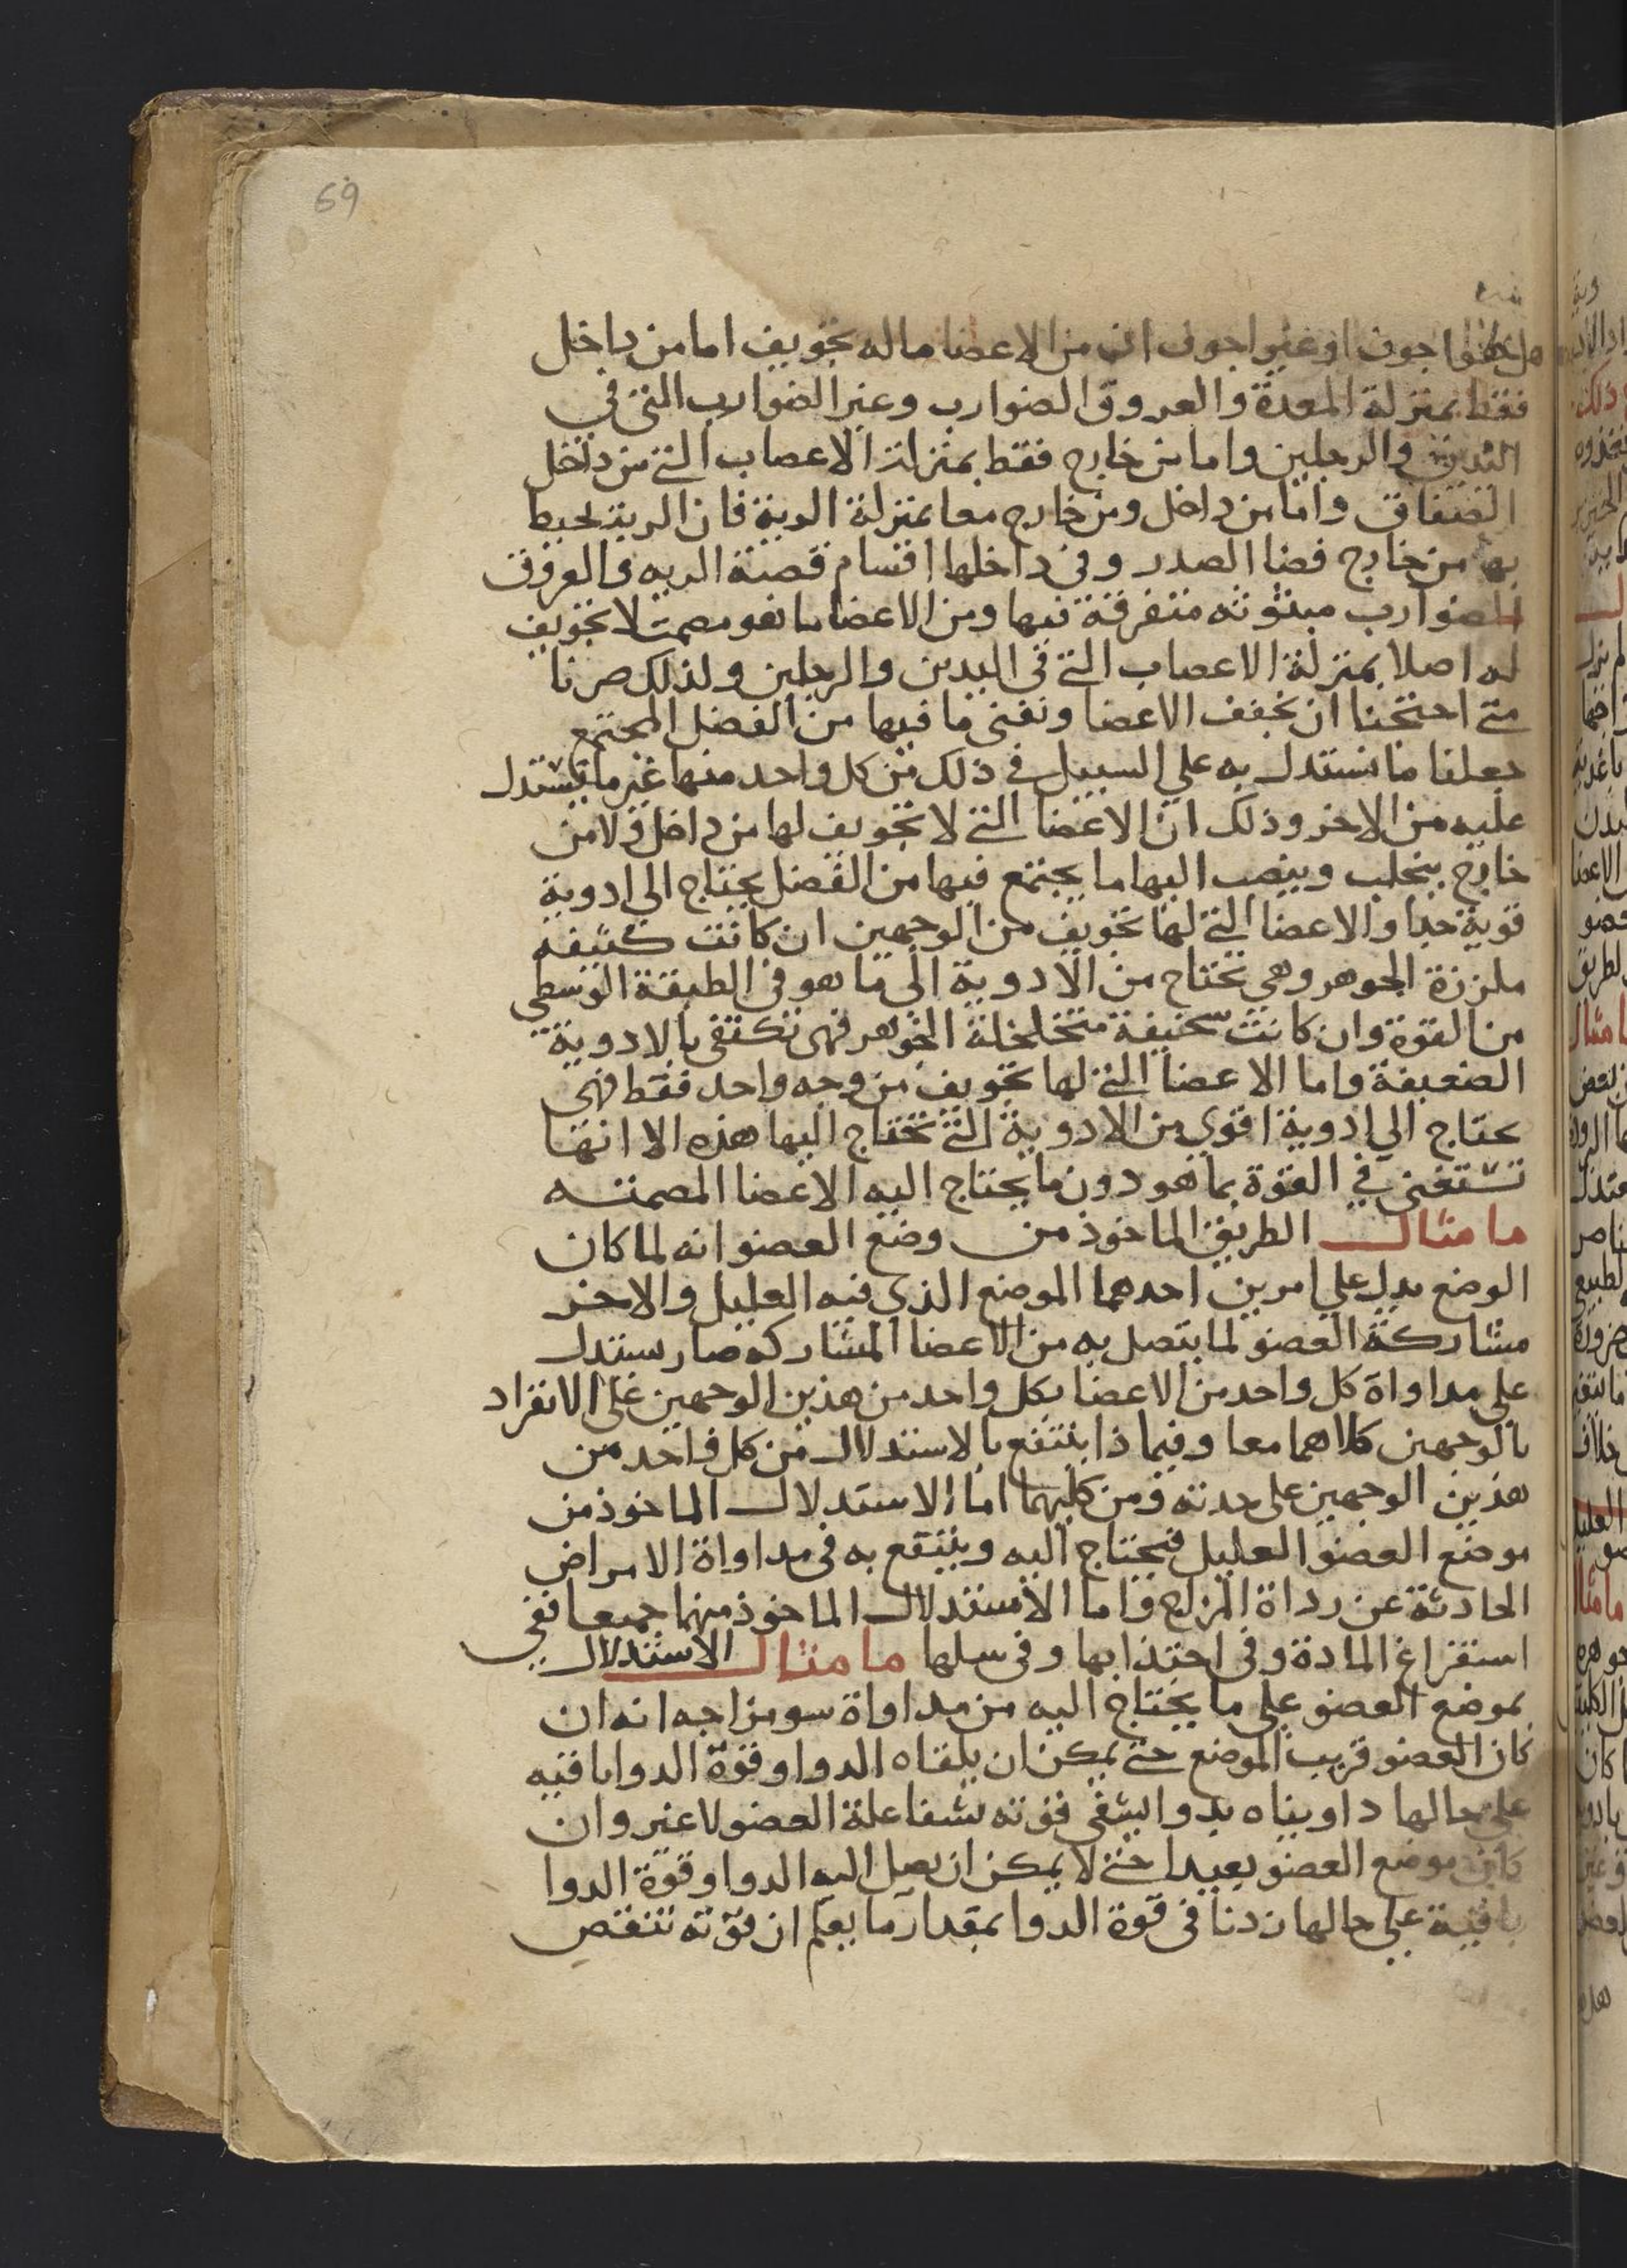 69
هل هو اجوف او غير اجوف ان من الاعضا ما له تجويف اما من داخل
فقط بمنزلة المعدة والعروق الضوارب وغير الضوارب التي في
اليدين والرجلين واما من خارج فقط بمنزلة الاعصاب التي من داخل
الصفاق واما من داخل ومن خارج معا بمنزلة الرية فان الرية يحيط
بها من خارج فضا الصدر وفي داخلها اقسام قصبة الريه والعروق
الضوارب مبثوثه متفرقة فيها ومن الاعضا ما هو مصمت لا تجويف
له اصلا بمنزلة الاعصاب التي في اليدين والرجلين ولذلك صرنا
متي احتجنا ان نجفف الاعضا ونفني ما فيها من الفضل المجتمع
جعلنا ما نستدل به علي السبيل في ذلك من كل واحد منها غير ما نستدل
عليه من الاخر وذلك ان الاعضا التي لا تجويف لها من داخل ولا من
خارج ينحلب وينصب اليها ما يجتمع فيها من الفضل يحتاج الي ادوية
قوية جدا والاعضا التي لها تجويف من الوجهين ان كانت كثيفه
ملززة الجوهر وهي تحتاج من الادوية الي ما هو في الطبقة الوسطي
من القوة وان كانت سخيفة متخلخلة الجوهر فهي تكتفي بالادوية
الضعيفة واما الاعضا التي لها تجويف من وجه واحد فقط فهي
تحتاج الي ادوية اقوي من الادوية التي تحتاج اليها هذه الا انها
تستغني في القوة بما هو دون ما يحتاج اليه الاعضا المصمته
ما مثال الطريق الماخوذ من وضع العضو انه لما كان
الوضع يدل علي امرين احدهما الموضع الذي فيه العليل والاخر
مشاركة العضو لما يتصل به من الاعضا المشاركه صار يستدل
علي مداواة كل واحد من الاعضا بكل واحد من هذين الوجهين علي الانفراد
بالوجهين كلاهما معا وفيما ذا ينتفع بالاستدلال من كل واحد من
هذين الوجهين علي حدته ومن كليهما اما الاستدلال الماخوذ من
موضع العضو العليل فيحتاج اليه وينتفع به في مداواة الامراض
الحادثة عن رداة المزاج واما الاستدلال الماخوذ منهما جميعا ففي
استفراغ المادة وفي اجتذابها وفي سلها ما مثال الاستدلال
بموضع العضو علي ما يحتاج اليه من مداواة سو مزاجه انه ان
كان العضو قريب الموضع حتي يمكن ان يلقاه الدوا وقوة الدوا باقيه
علي حالها داويناه بدوا ليشفي قوته بشفا علة العضو لا غير وان
كان موضع العضو بعيدا حتي لا يمكن ان يصل اليه الدوا وقوة الدوا
باقية علي حالها زدنا في قوة الدوا بمقدار ما يعلم ان قوته تنقص